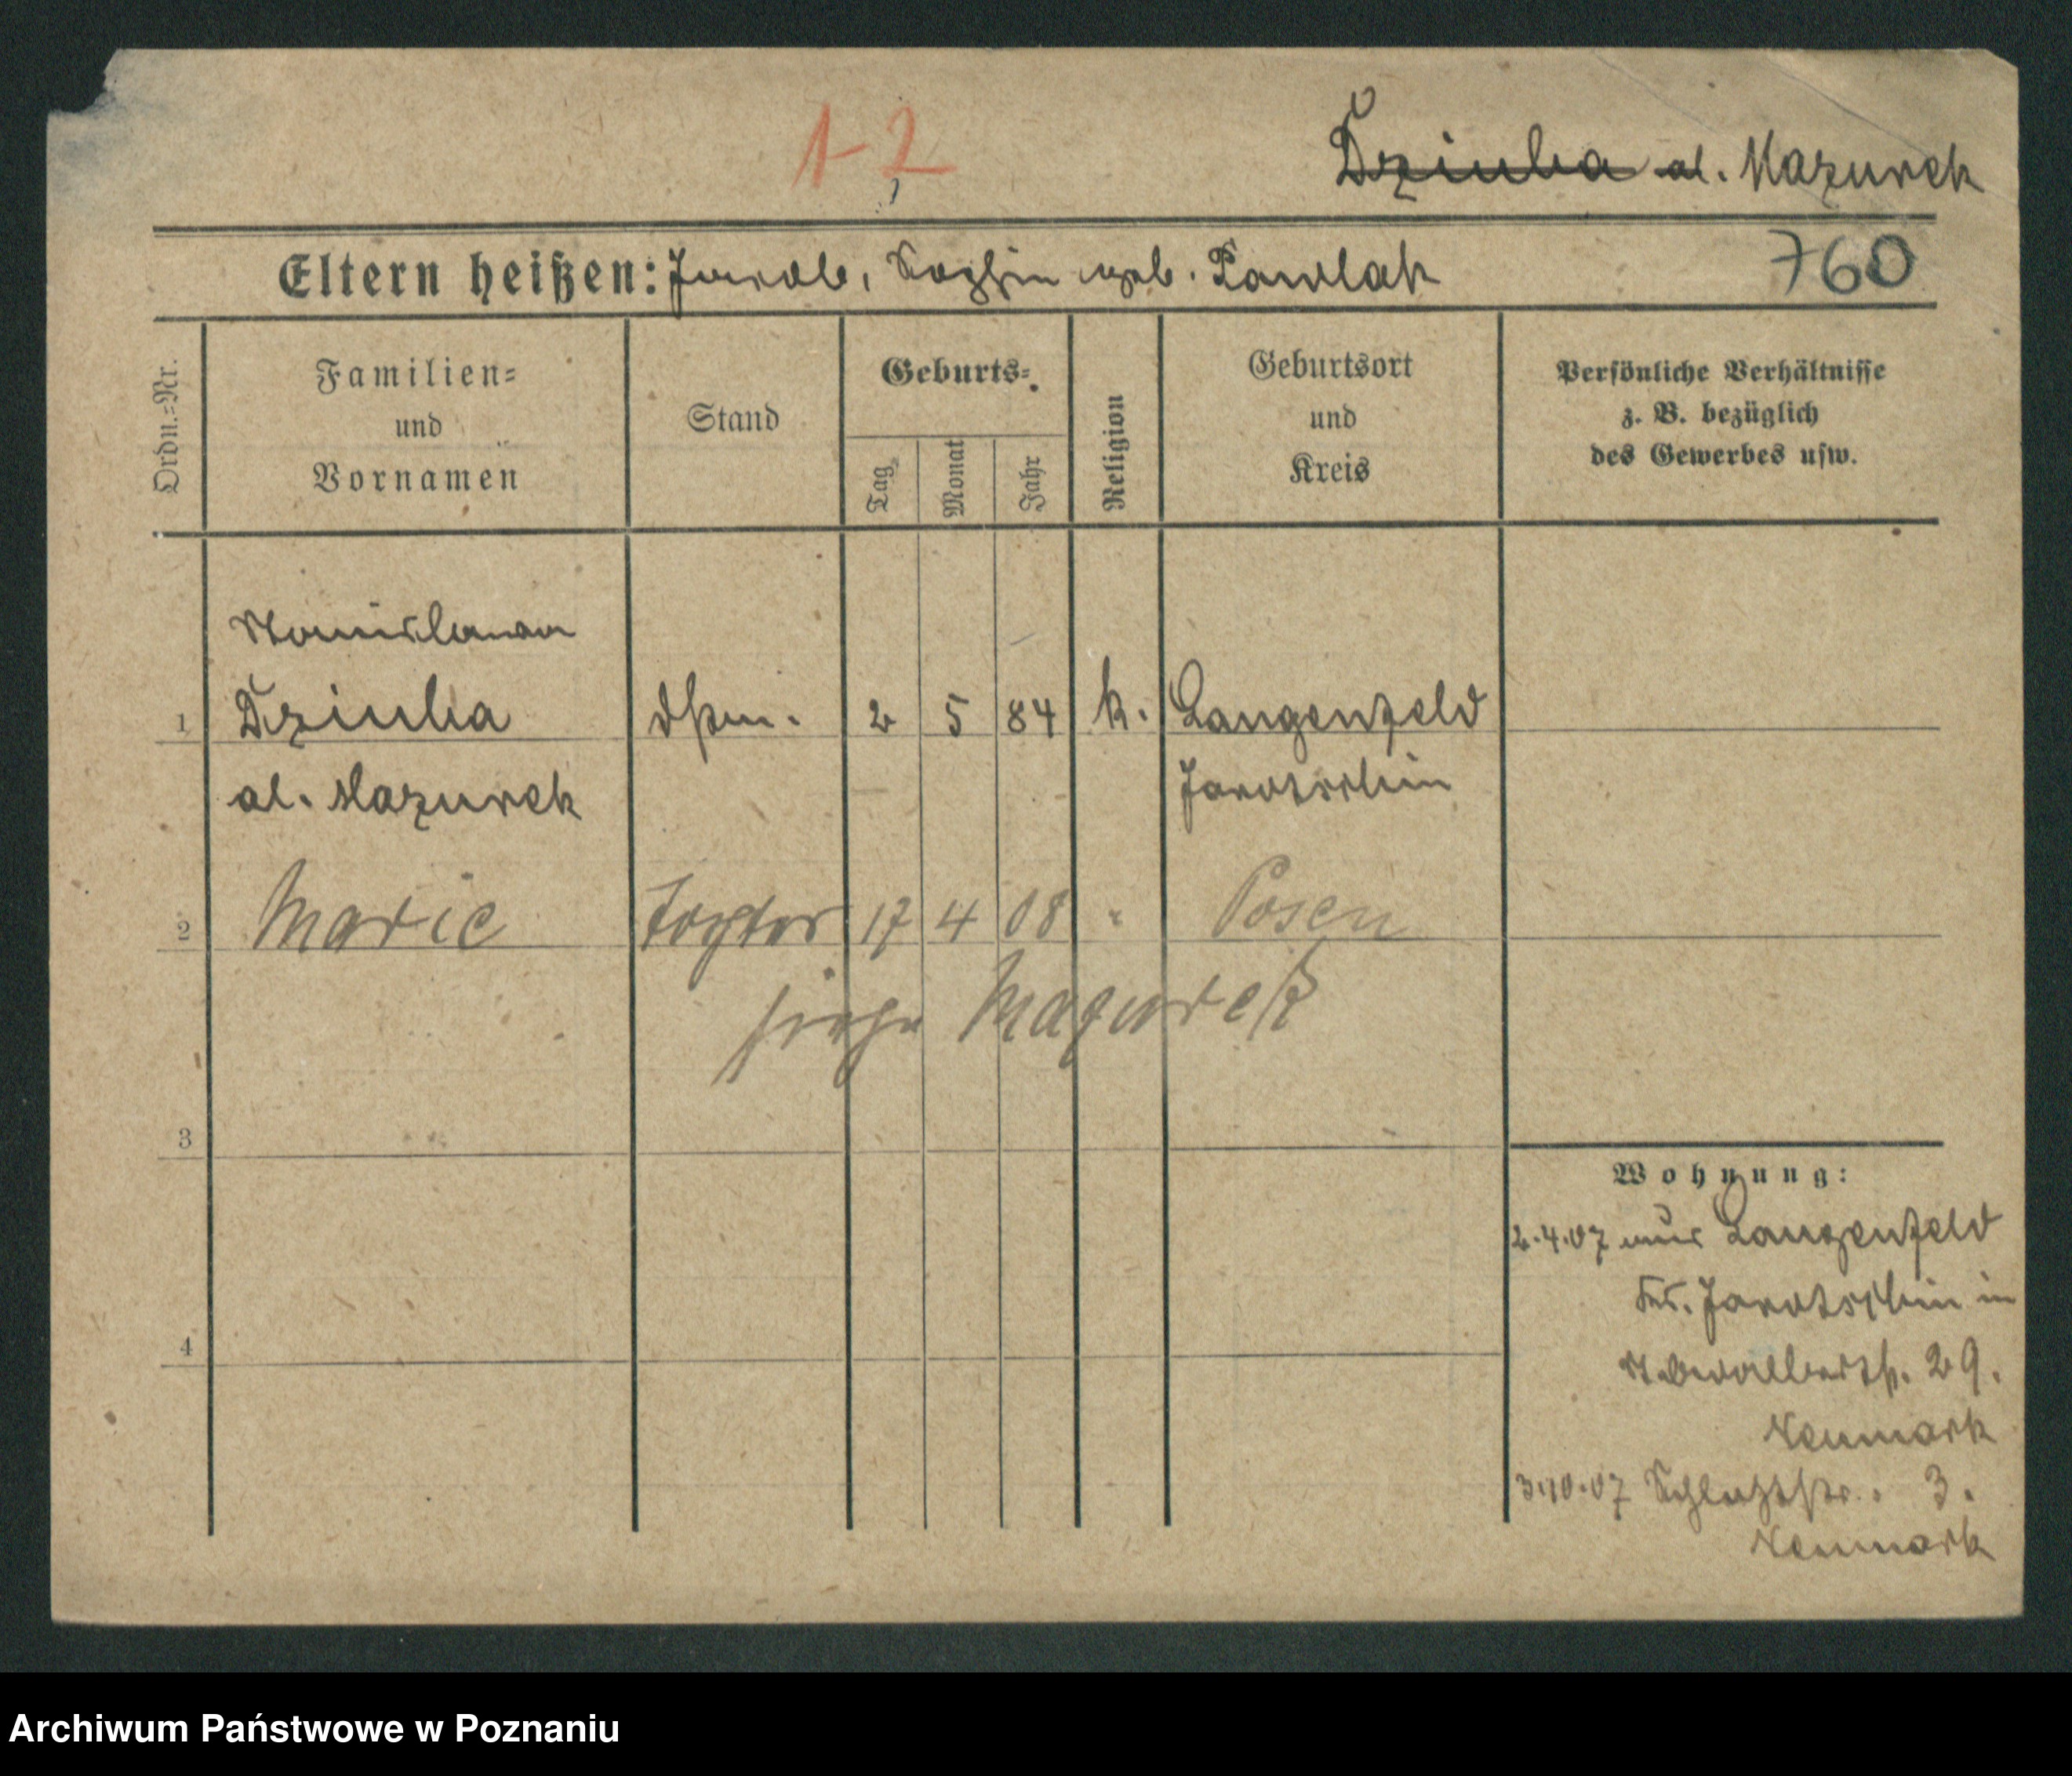 1-2
Dziuba al. Mazurek
Eltern heißen: Jacob, Sophie geb. Pawlak
760
Ordn.=Nr.
Familien=
und
Vornamen
Stand
Geburts=
Tag
Monat
Jahr
Religion
Geburtsort
und
Kreis
Persönliche Verhältnisse
z. B. bezüglich
des Gewerbes usw.
Stanislawa
1 Dziuba 2 5 84 k. Langenfeld
al. Mazurek Jarotschin
2 Marie Tochter 17 4 08 " Posen
siehe Mazurek
3
4
Wohnung:
2.4.07 aus Langenfeld
Jarotschin in
29.
Neumark
3.10.07 3.
Neumark
Archiwum Państwowe w Poznaniu